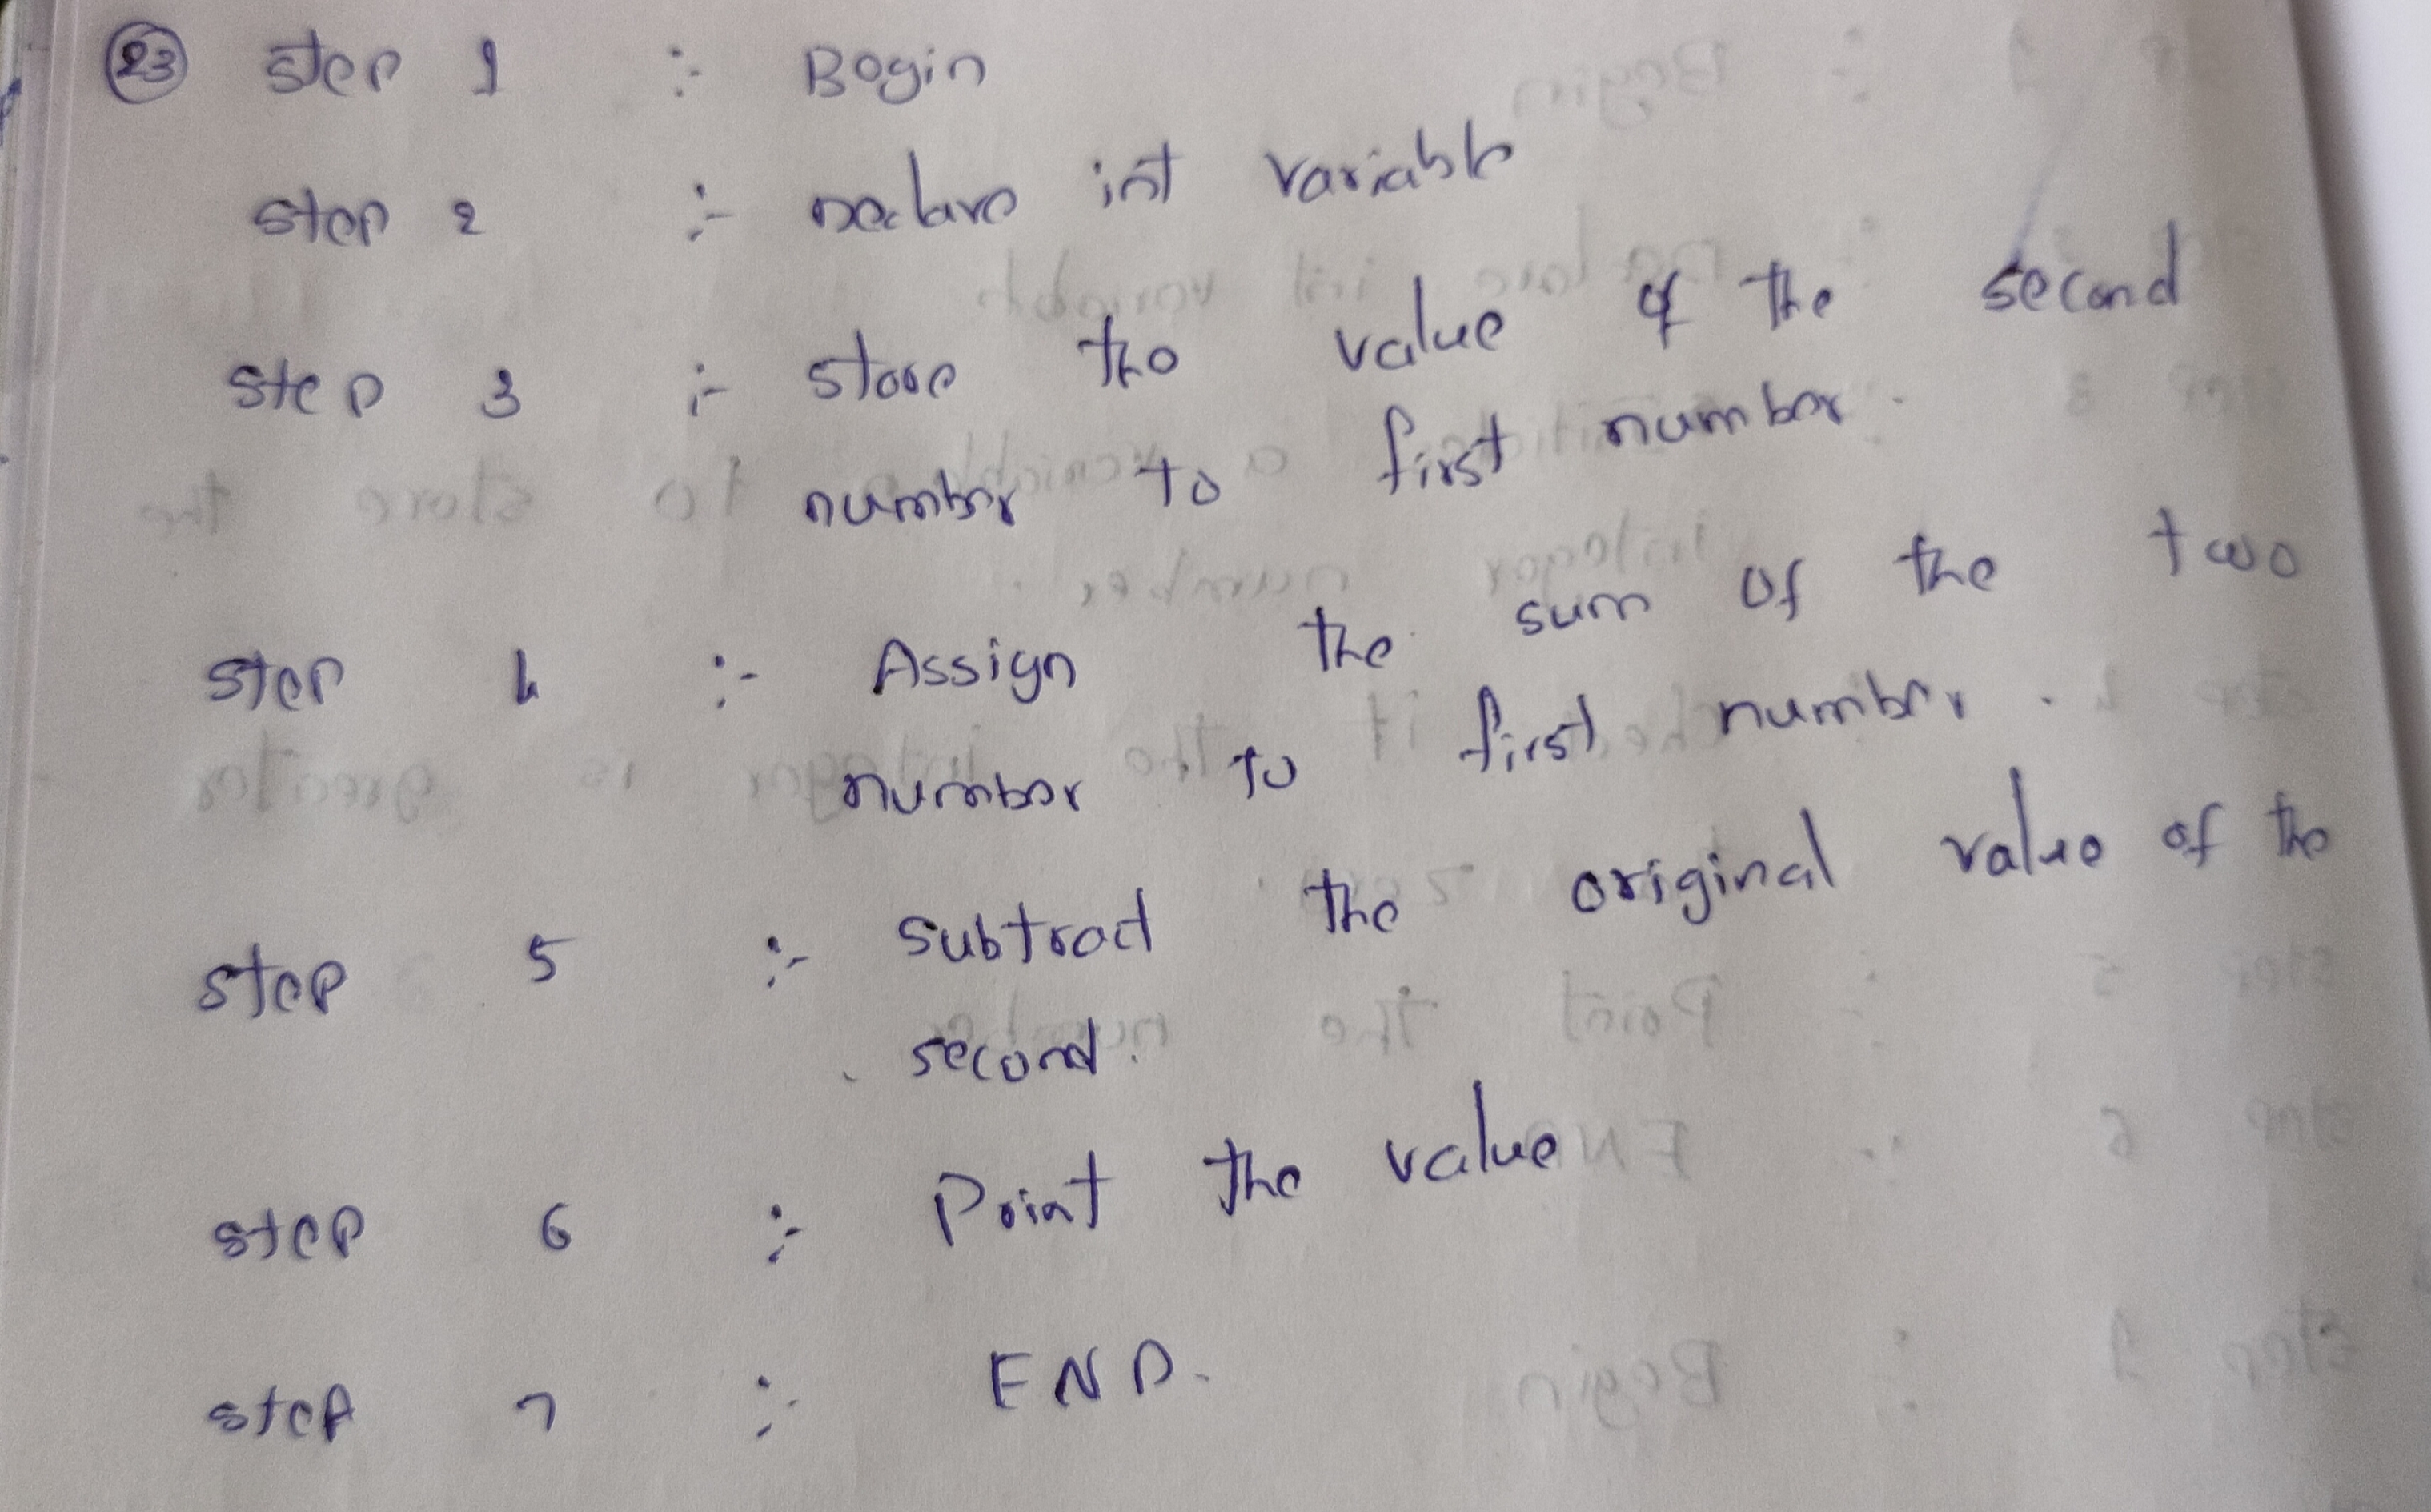 23 Step 1 :- Begin
Step 2 :- Declare int variable
Step 3 :- Store the value of the second
number to first number.
Step 4 :- Assign the sum of the two
number to first number.
Step 5 :- Subtract the original value of the
second.
Step 6 :- Print the value
Step 7 :- END.